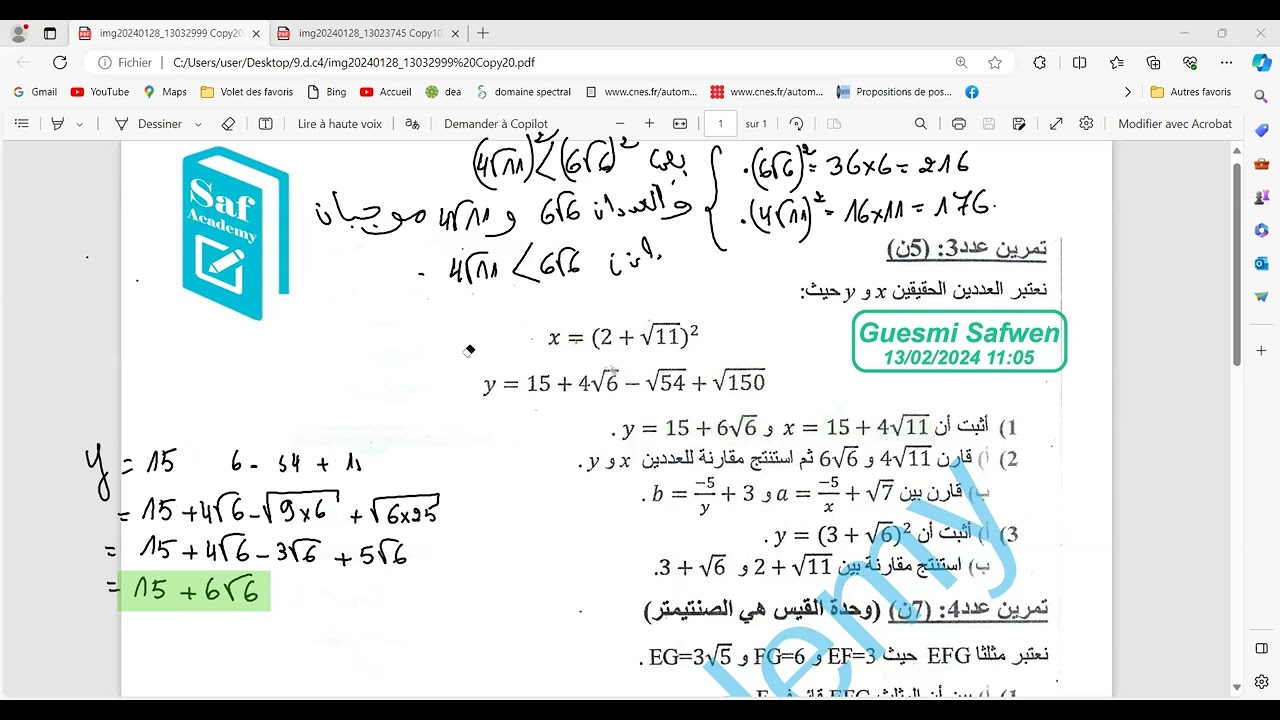 img20240128_13032999 Copy20.
img20240128_13023745 Copy10
Fichier
C:/Users/user/Desktop/9.d.c4/img20240128_13032999%20Copy20.pdf
Gmail YouTube Maps Volet des favoris Bing Accueil dea domaine spectral www.cnes.fr/autom... www.cnes.fr/autom... Propositions de pos... Autres favoris
Dessiner Lire à haute voix Demander à Copilot 1 sur 1 Modifier avec Acrobat
Saf
Academy
(4√11)² < (6√6)²
.(6√6)² = 36×6 = 216
والعددان 6√6 و 4√11 موجبان
.(4√11)² = 16×11 = 176.
4√11 < 6√6
تمرين عدد3: (5ن)
نعتبر العددين الحقيقين x و y حيث:
x = (2 + √11)²
Guesmi Safwen
13/02/2024 11:05
y = 15 + 4√6 − √54 + √150
1) أثبت أن x = 15 + 4√11 و y = 15 + 6√6 .
2) أ) قارن 4√11 و 6√6 ثم استنتج مقارنة للعددين x و y .
ب) قارن بين a = −5/x + √7 و b = −5/y + 3 .
3) أ) أثبت أن y = (3 + √6)² .
ب) استنتج مقارنة بين 2 + √11 و 3 + √6.
y = 15 6 - 54 + 1
= 15 + 4√6 - √9×6 + √6×25
= 15 + 4√6 - 3√6 + 5√6
= 15 + 6√6
تمرين عدد4: (7ن) (وحدة القيس هي الصنتيمتر)
نعتبر مثلثا EFG حيث EF=3 و FG=6 و EG=3√5 .
demy